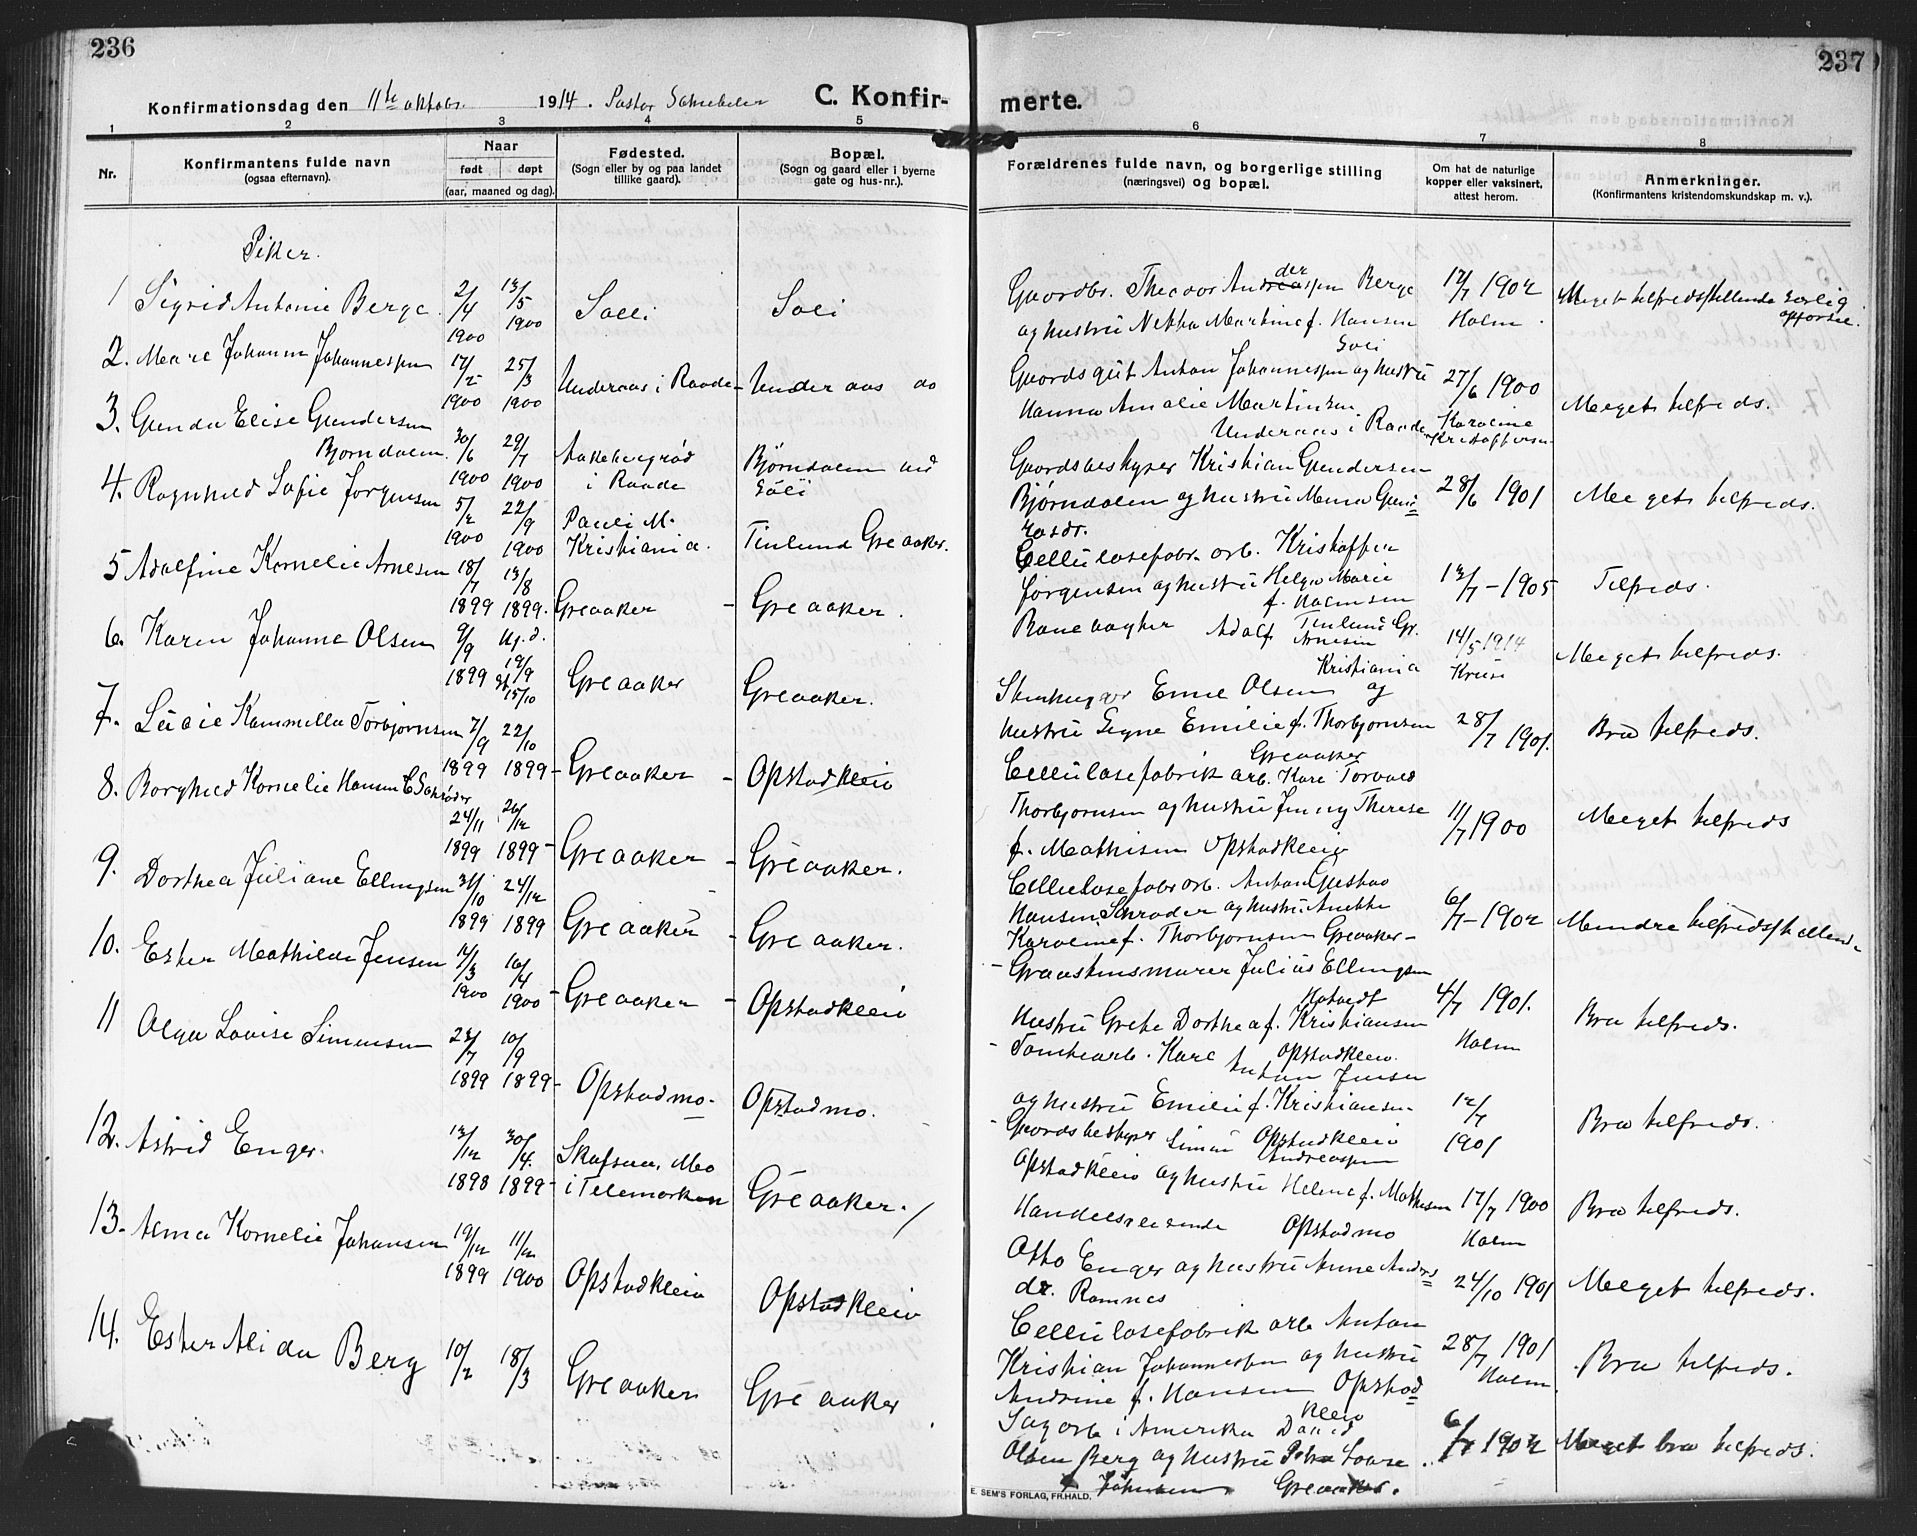 236
237
Konfirmationsdag den 11te oktobr. 1914. Pastor Schubeler
C. Konfir-
merte.
1 2 3 4 5 6 7 8
Nr.
Konfirmantens fulde navn
(ogsaa efternavn).
Naar
født døpt
(aar, maaned og dag).
Fødested.
(Sogn eller by og paa landet
tillike gaard).
Bopæl.
(Sogn og gaard eller i byerne
gate og hus-nr.).
Forældrenes fulde navn, og borgerlige stilling
(næringsvei) og bopæl.
Om hat de naturlige
kopper eller vaksinert,
attest herom.
Anmerkninger.
(Konfirmantens kristendomskundskap m. v.).
Piker.
1 Sigrid Antonie Berge. 2/4 1900 13/5 1900 Solli Soli
Gaardbr. Theodor Anderssen Berge
og hustru Nikka Martine f. Hansen
Soli
12/7 1902
Holm
Meget tilfredsstillende særlig
opførsel.
2. Mari Johanne Johannessen 17/2 1900 25/3 1900 Underaas i Raade - Underaas do
Gaardsgut Anton Johannessen og hustru
Hanna Amalie Martinsen
Underaas i Raade
27/6 1900
Karoline
Kristoffersen
Meget tilfreds.
3. Gunda Elise Gundersen
Bjørndalen. 30/6 1900 29/7 1900 Aakebergrød
i Raade
Bjørndalen ved
Soli
Gaardsbestyrer Kristian Gundersen
Bjørndalen og hustru
28/6 1901 Meget tilfreds.
4. Ragnhild Sofie Jørgensen 5/2 1900 22/9 1900 Pauli M.
Kristiania. Tinlund Greaaker.
Cellulosefabr. arb. Kristoffer
Jørgensen og hustru Helga Marie
f. Halmsen
Tinlund Gr.
12/7 - 1905 Tilfreds.
5 Adolfine Kornelie Arnesen 18/7 1899 13/8 1899. Greaaker - Greaaker.
Banevogter Adolf Arnesen
Kristiania
14/5 1914
Kruse
Meget tilfreds.
6. Karen Johanne Olsen 9/9 1899 Hj. d.
19/9
st. 15/10 Greaaker Greaaker.
Stenhugger Emil Olsen og
hustru Signe Emilie f. Thorbjørnsen
Greaaker
28/7 1901. Bra tilfreds.
7. Lucie Kammilla Torbjørnsen 7/9 1899 22/10 1899 - Greaaker - Opstadkleiv
Cellulosefabrik arb. Karl Torvald
Thorbjørnsen og hustru Jenny Therese
f. Mathisen Opstadkleiv
11/7 1900 Meget tilfreds
8. Borghild Kornelie Hansen Schrøder 24/11 1899 26/12 1899 - Greaaker - Greaaker.
Cellulosefabr arb. Anton Gustav
Hansen Schrøder og hustru Anette
Karoline f. Thorbjørnsen Greaaker -
6/7 - 1902 Mindre tilfredsstillende
9. Dorthea Juliane Ellingsen 31/10 1899 24/12 1899 Greaaker - Greaaker.
- Graastensmurer Julius Ellingsen
Hatvedt
Hustru Grete Dorthea f. Kristiansen
Opstadkleiv.
4/7 1901.
Holm
Bra tilfreds.
10. Ester Mathilde Jensen 14/3 1900 16/4 1900 - Greaaker - Opstadkleiv
- Tomtearb. Karl Anton Jensen
og hustru Emilie f. Kristiansen
Opstadkleiv
12/7
1901
Bra tilfreds.
11 Olga Lovise Simensen 23/7 1899 10/9 1899 - Opstadmo - Opstadmo.
- Gaardsbestyrer Simen Andreassen
Opstadkleiv og hustru Helene f. Mathisen
Opstadmo
17/7 1900
Holm
Bra tilfreds.
12. Astrid Enger. 13/12 1898 30/4. 1899 - Skafsaa, Mo
i Telemarken Greaaker.
Handelsreisende
Otto Enger og hustru Anne Anders
dr. Ramnes
24/10 1901 Meget tilfreds.
13. Alma Kornelie Johansen 19/12 1899 11/2 1900 Opstadkleiv Opstadkleiv
Cellulosefabrik arb Anton
Kristian Johannessen og hustru
Andrine f. Hansen Opstad
kleiv
28/7 1901
Holm.
Bra tilfreds.
14. Ester Alida Berg 10/2 18/3 Greaaker Greaaker
Sagarb i Amerika David
Olsen Berg og hustru Petra Lovise.
f. Johnsen Greaaker.
6/7 1902 Meget bra tilfreds.
E. SEM'S FORLAG, FR.HALD.